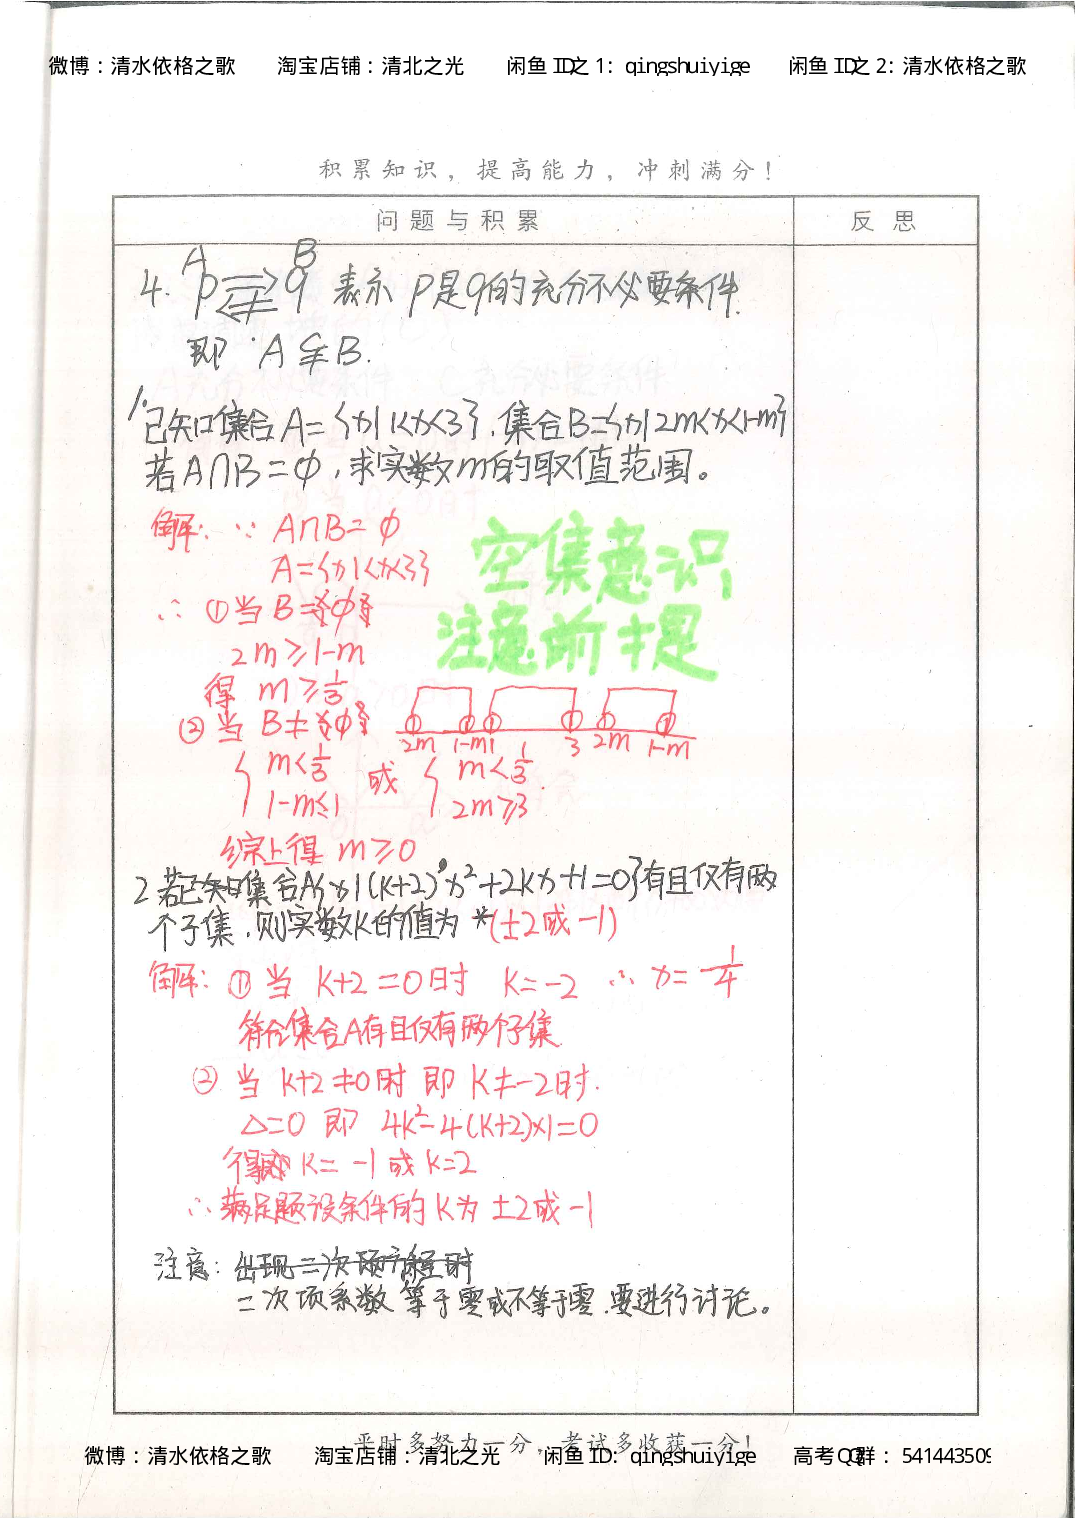 微博：清水依格之歌 淘宝店铺：清北之光 闲鱼ID之1：qingshuiyige 闲鱼ID之2：清水依格之歌
积累知识，提高能力，冲刺满分！
问题与积累 反思
A B
4. p⇌q 表示 p是q的充分不必要条件.
即 A⫋B.
1. 已知集合A={x|1<x<3},集合B={x|2m<x<1-m}
若A∩B=∅,求实数m的取值范围。
解：∵ A∩B=∅
A={x|1<x<3}
空集意识
∴ ①当B=∅
注意前提
2m≥1-m
得 m≥1/3
②当B≠∅
2m 1-m 1 3 2m 1-m
{ m<1/3 或 { m<1/3
1-m≤1 2m≥3
综上得 m≥0
2 若已知集合A{x|(k+2)x²+2kx+1=0}有且仅有两
个子集,则实数k的值为 *(±2或-1)
解：①当 k+2=0时 k=-2 ∴ x=1/4
符合集合A有且仅有两个子集
②当 k+2≠0时 即 k≠-2时.
△=0 即 4k²-4(k+2)×1=0
得 k=-1或k=2
∴ 满足题设条件的k为 ±2或-1
注意：出现二次项方程时
二次项系数等于零或不等于零.要进行讨论。
平时多努力一分，考试多收获一分！
微博：清水依格之歌 淘宝店铺：清北之光 闲鱼ID：qingshuiyige 高考QQ群：541443509